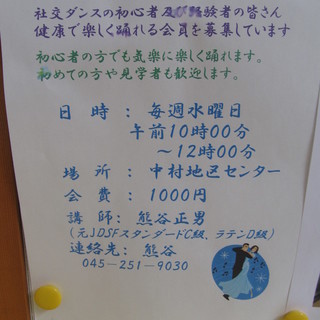 社交ダンスの初心者及び経験者の皆さん
健康で楽しく踊れる会員を募集しています
初心者の方でも気楽に楽しく踊れます。
初めての方や見学者も歓迎します。
日 時 : 毎週水曜日
午前10時00分
～12時00分
場 所 : 中村地区センター
会 費 : 1000円
講 師: 熊谷正男
(元JDSFスタンダードC級、ラテンD級)
連絡先: 熊谷
045―251―9030